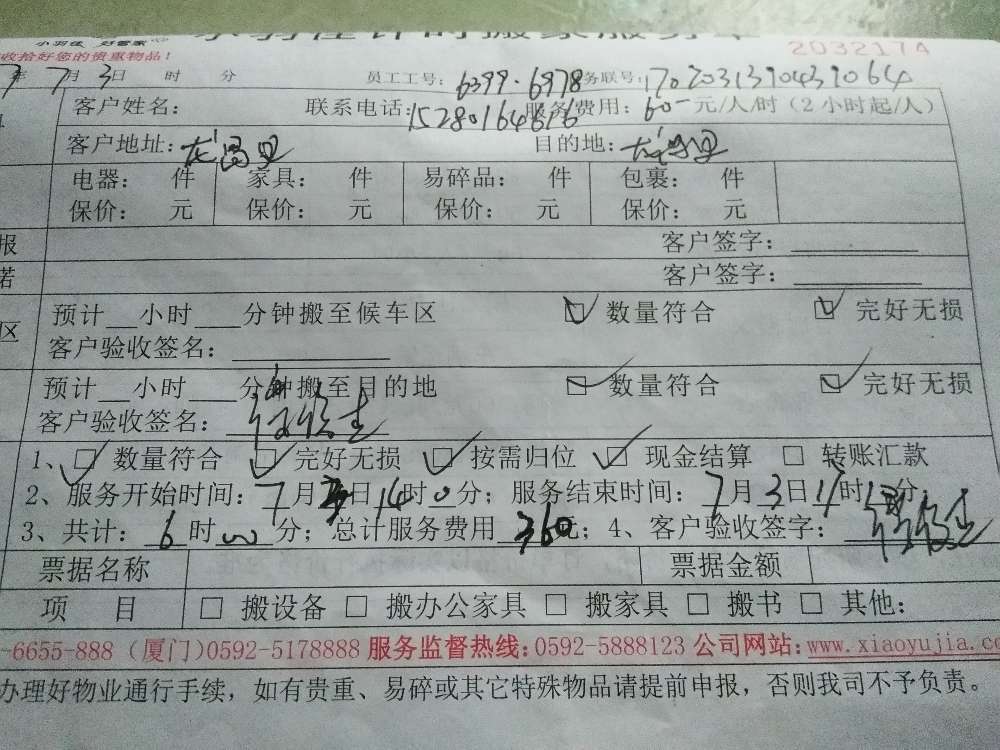 小羽佳 好管家
2032174
收拾好您的贵重物品!
7年7月3日 时 分 员工工号: 6399.6978 务联号: 1702031390439064
客户姓名: 联系电话: 15280164616 服务费用: 60元/人/时(2小时起/人)
客户地址: 目的地:
电器: 件 家具: 件 易碎品: 件 包裹: 件
保价: 元 保价: 元 保价: 元 保价: 元
报 客户签字:
诺 客户签字:
区 预计__小时___分钟搬至候车区 数量符合 完好无损
客户验收签名:
预计__小时___分钟搬至目的地 数量符合 完好无损
客户验收签名:
1、□数量符合 □完好无损 □按需归位 □现金结算 □转账汇款
2、服务开始时间: 7月3日14时0分; 服务结束时间: 7月3日 时 分
3、共计: 6时00分; 总计服务费用360元; 4、客户验收签字:
票据名称 票据金额
项 目 □搬设备 □搬办公家具 □搬家具 □搬书 □其他:
-6655-888 (厦门)0592-5178888 服务监督热线:0592-5888123 公司网站:www.xiaoyujia.co
办理好物业通行手续,如有贵重、易碎或其它特殊物品请提前申报,否则我司不予负责。